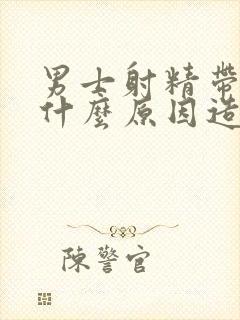 男士射精帶
什麼原因造
陳警官